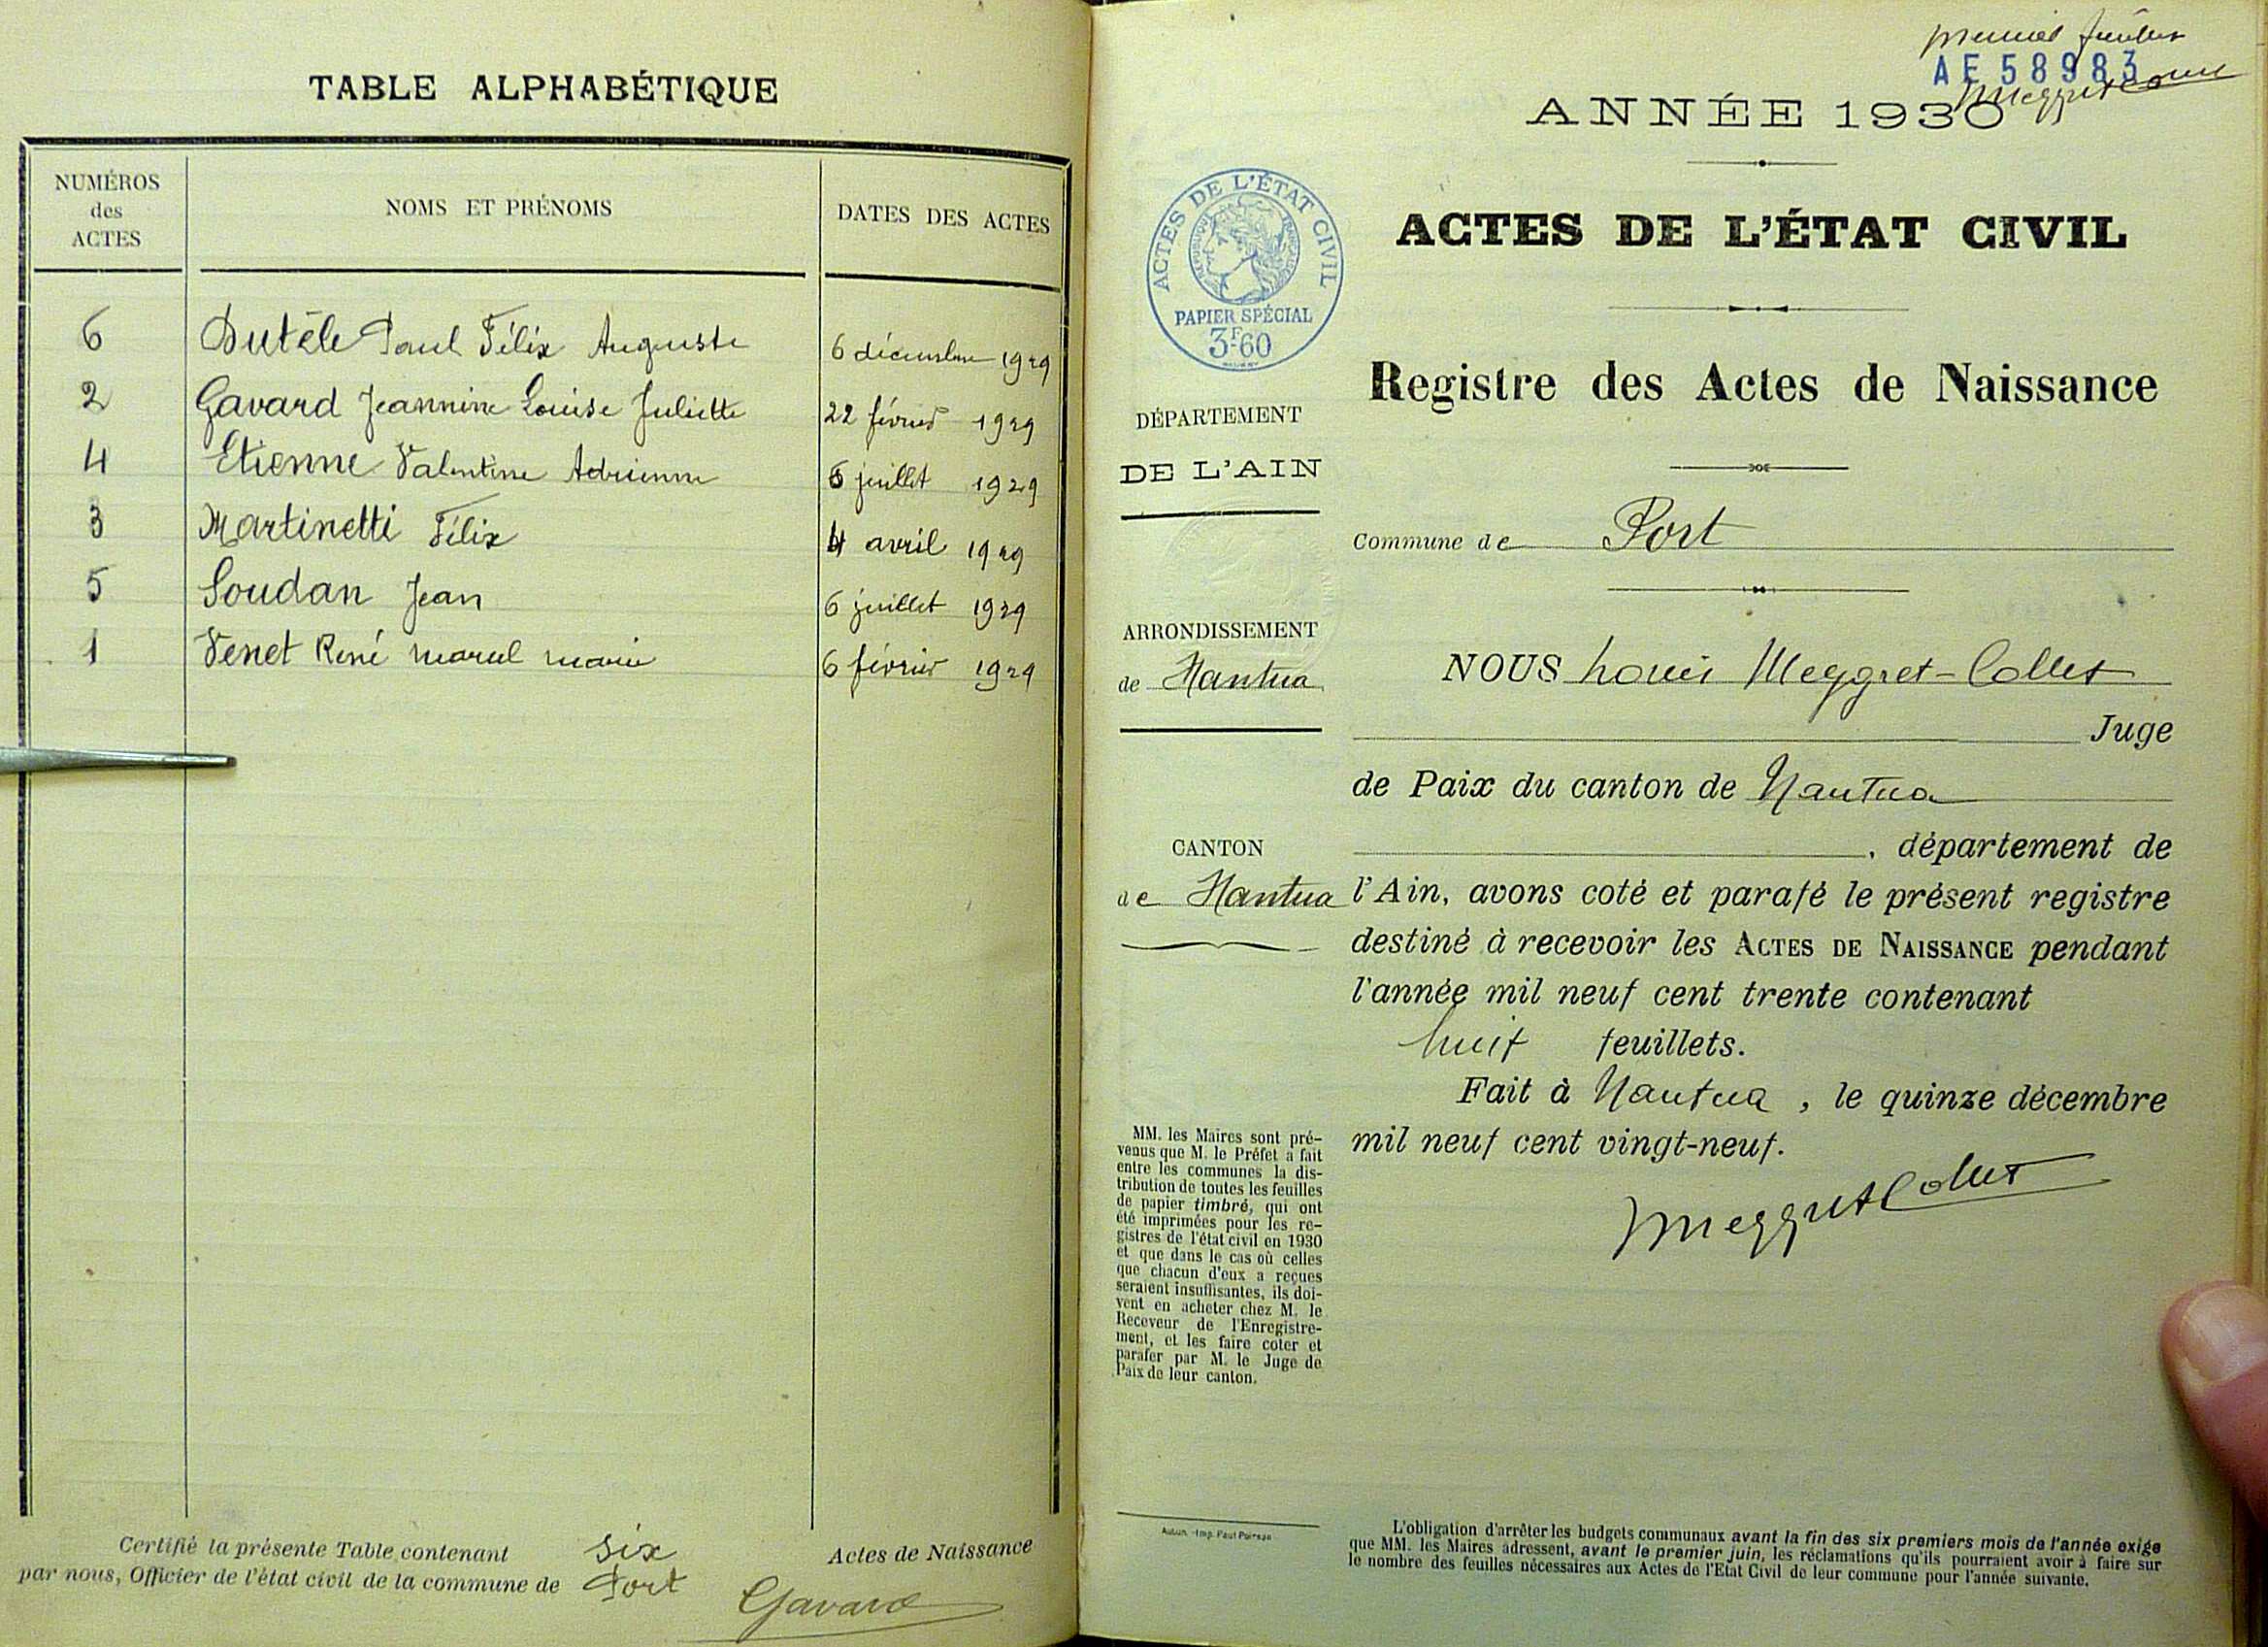 TABLE ALPHABÉTIQUE
NUMÉROS
des
ACTES
NOMS ET PRÉNOMS
DATES DES ACTES
6 Dutèle Paul Félix Auguste 6 décembre 1929
2 Gavard Jeannine Louise Juliette 22 février 1929
4 Etienne Valentine Adrienne 5 juillet 1929
3 Martinetti Félix 4 avril 1929
5 Soudan Jean 6 juillet 1929
1 Venet René Marcel Marie 6 février 1929
Certifié la présente Table contenant six Actes de Naissance
par nous, Officier de l'état civil de la commune de Port
Gavard
premier feuillet
AE 58983
Meggret Collet
ANNÉE 1930
ACTES DE L'ÉTAT CIVIL
RÉPUBLIQUE FRANÇAISE
PAPIER SPÉCIAL
3F60
ACTES DE L'ÉTAT CIVIL
Registre des Actes de Naissance
DÉPARTEMENT
DE L'AIN
Commune de Port
ARRONDISSEMENT
de Nantua
CANTON
de Nantua
NOUS Louis Meggret-Collet
Juge
de Paix du canton de Nantua
, département de
l'Ain, avons coté et parafé le présent registre
destiné à recevoir les ACTES DE NAISSANCE pendant
l'année mil neuf cent trente contenant
huit feuillets.
Fait à Nantua, le quinze décembre
mil neuf cent vingt-neuf.
Meggret Collet
MM. les Maires sont pré-
venus que M. le Préfet a fait
entre les communes la dis-
tribution de toutes les feuilles
de papier timbré, qui ont
été imprimées pour les re-
gistres de l'état civil en 1930
et que dans le cas où celles
que chacun d'eux a reçues
seraient insuffisantes, ils doi-
vent en acheter chez M. le
Receveur de l'Enregistre-
ment, et les faire coter et
parafer par M. le Juge de
Paix de leur canton.
Autun. - Imp. Paul Poirson
L'obligation d'arrêter les budgets communaux avant la fin des six premiers mois de l'année exige
que MM. les Maires adressent, avant le premier juin, les réclamations qu'ils pourraient avoir à faire sur
le nombre des feuilles nécessaires aux Actes de l'Etat Civil de leur commune pour l'année suivante.